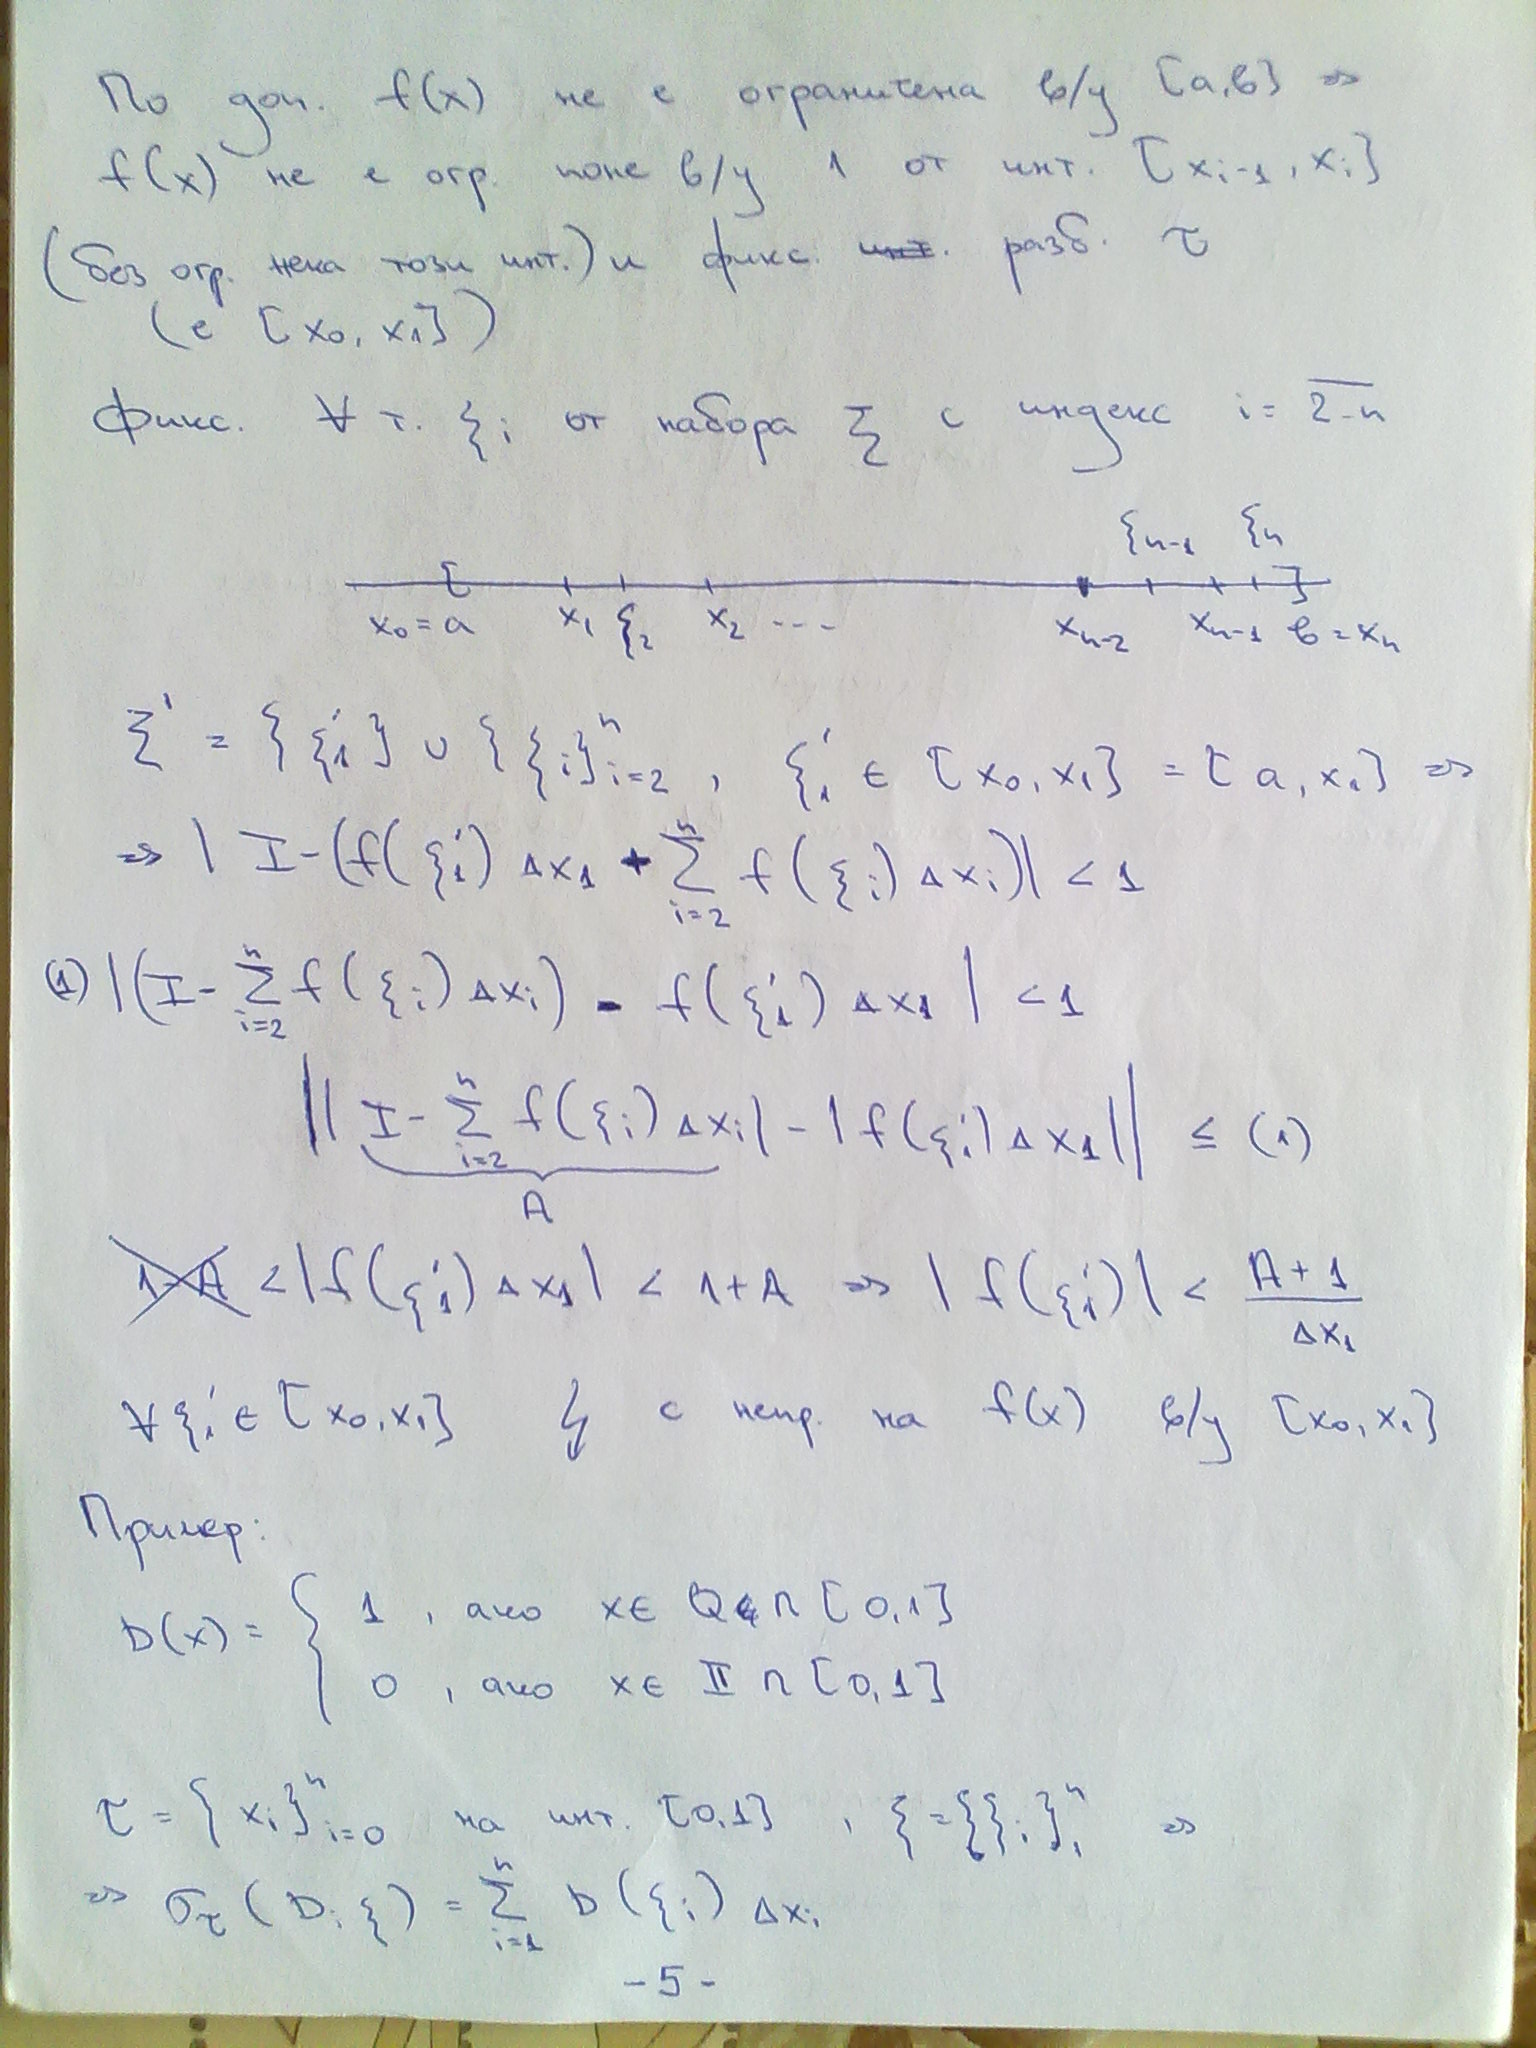 По доп. f(x) не е ограничена в/у [a,b] =>
f(x) не е огр. поне в/у 1 от инт. [x_{i-1}, x_i]
(без огр. нека този инт.) и фикс. инт. разб. τ
(е [x_0, x_1])
Фикс. ∀ т. ξ_i от набора ξ с индекс i = \overline{2-n}
ξ_{n-1} ξ_n
x_0 = a x_1 ξ_2 x_2 --- x_{n-2} x_{n-1} b = x_n
ξ' = {ξ_1'} ∪ {ξ_i}_{i=2}^n, ξ_1' ∈ [x_0, x_1] = [a, x_1] =>
=> | I - (f(ξ_1') Δx_1 + Σ_{i=2}^n f(ξ_i) Δx_i)| < 1
(1) |(I - Σ_{i=2}^n f(ξ_i) Δx_i) - f(ξ_1') Δx_1 | < 1
|| I - Σ_{i=2}^n f(ξ_i) Δx_i| - | f(ξ_1') Δx_1 || ≤ (1)
A
1-A < |f(ξ_1') Δx_1| < 1+A => | f(ξ_1') | < \frac{A+1}{Δx_1}
∀ ξ_1' ∈ [x_0, x_1] ↯ с непр. на f(x) в/у [x_0, x_1]
Пример:
D(x) = { 1, ако x ∈ Q ∩ [0,1]
0, ако x ∈ II ∩ [0,1]
τ = {x_i}_{i=0}^n на инт. [0,1], ξ = {ξ_i}_1^n =>
=> σ_τ (D; ξ) = Σ_{i=1}^n D(ξ_i) Δx_i
-5-